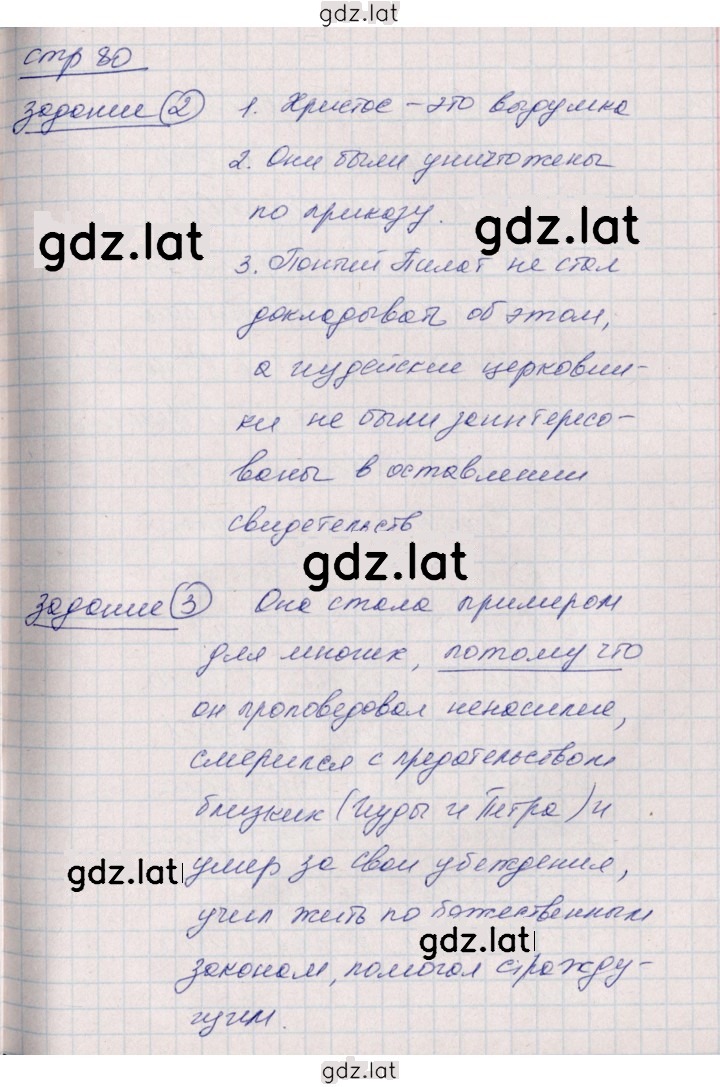 gdz.lat
стр 80
задание 2 1. Христос – это выдумка
2. Они были уничтожены
по приказу.
gdz.lat
gdz.lat
3. Понтий Пилат не стал
докладывать об этом,
а иудейские церковни-
ки не были заинтересо-
ваны в оставлении
свидетельств
gdz.lat
задание 3 Она стала примером
для многих, потому что
он проповедовал ненасилие,
смерился с предательством
близких (Иуды и Петра) и
gdz.lat
умер за свои убеждения,
учил жить по божественным
gdz.lat
законам, помогал стражду-
щим.
gdz.lat